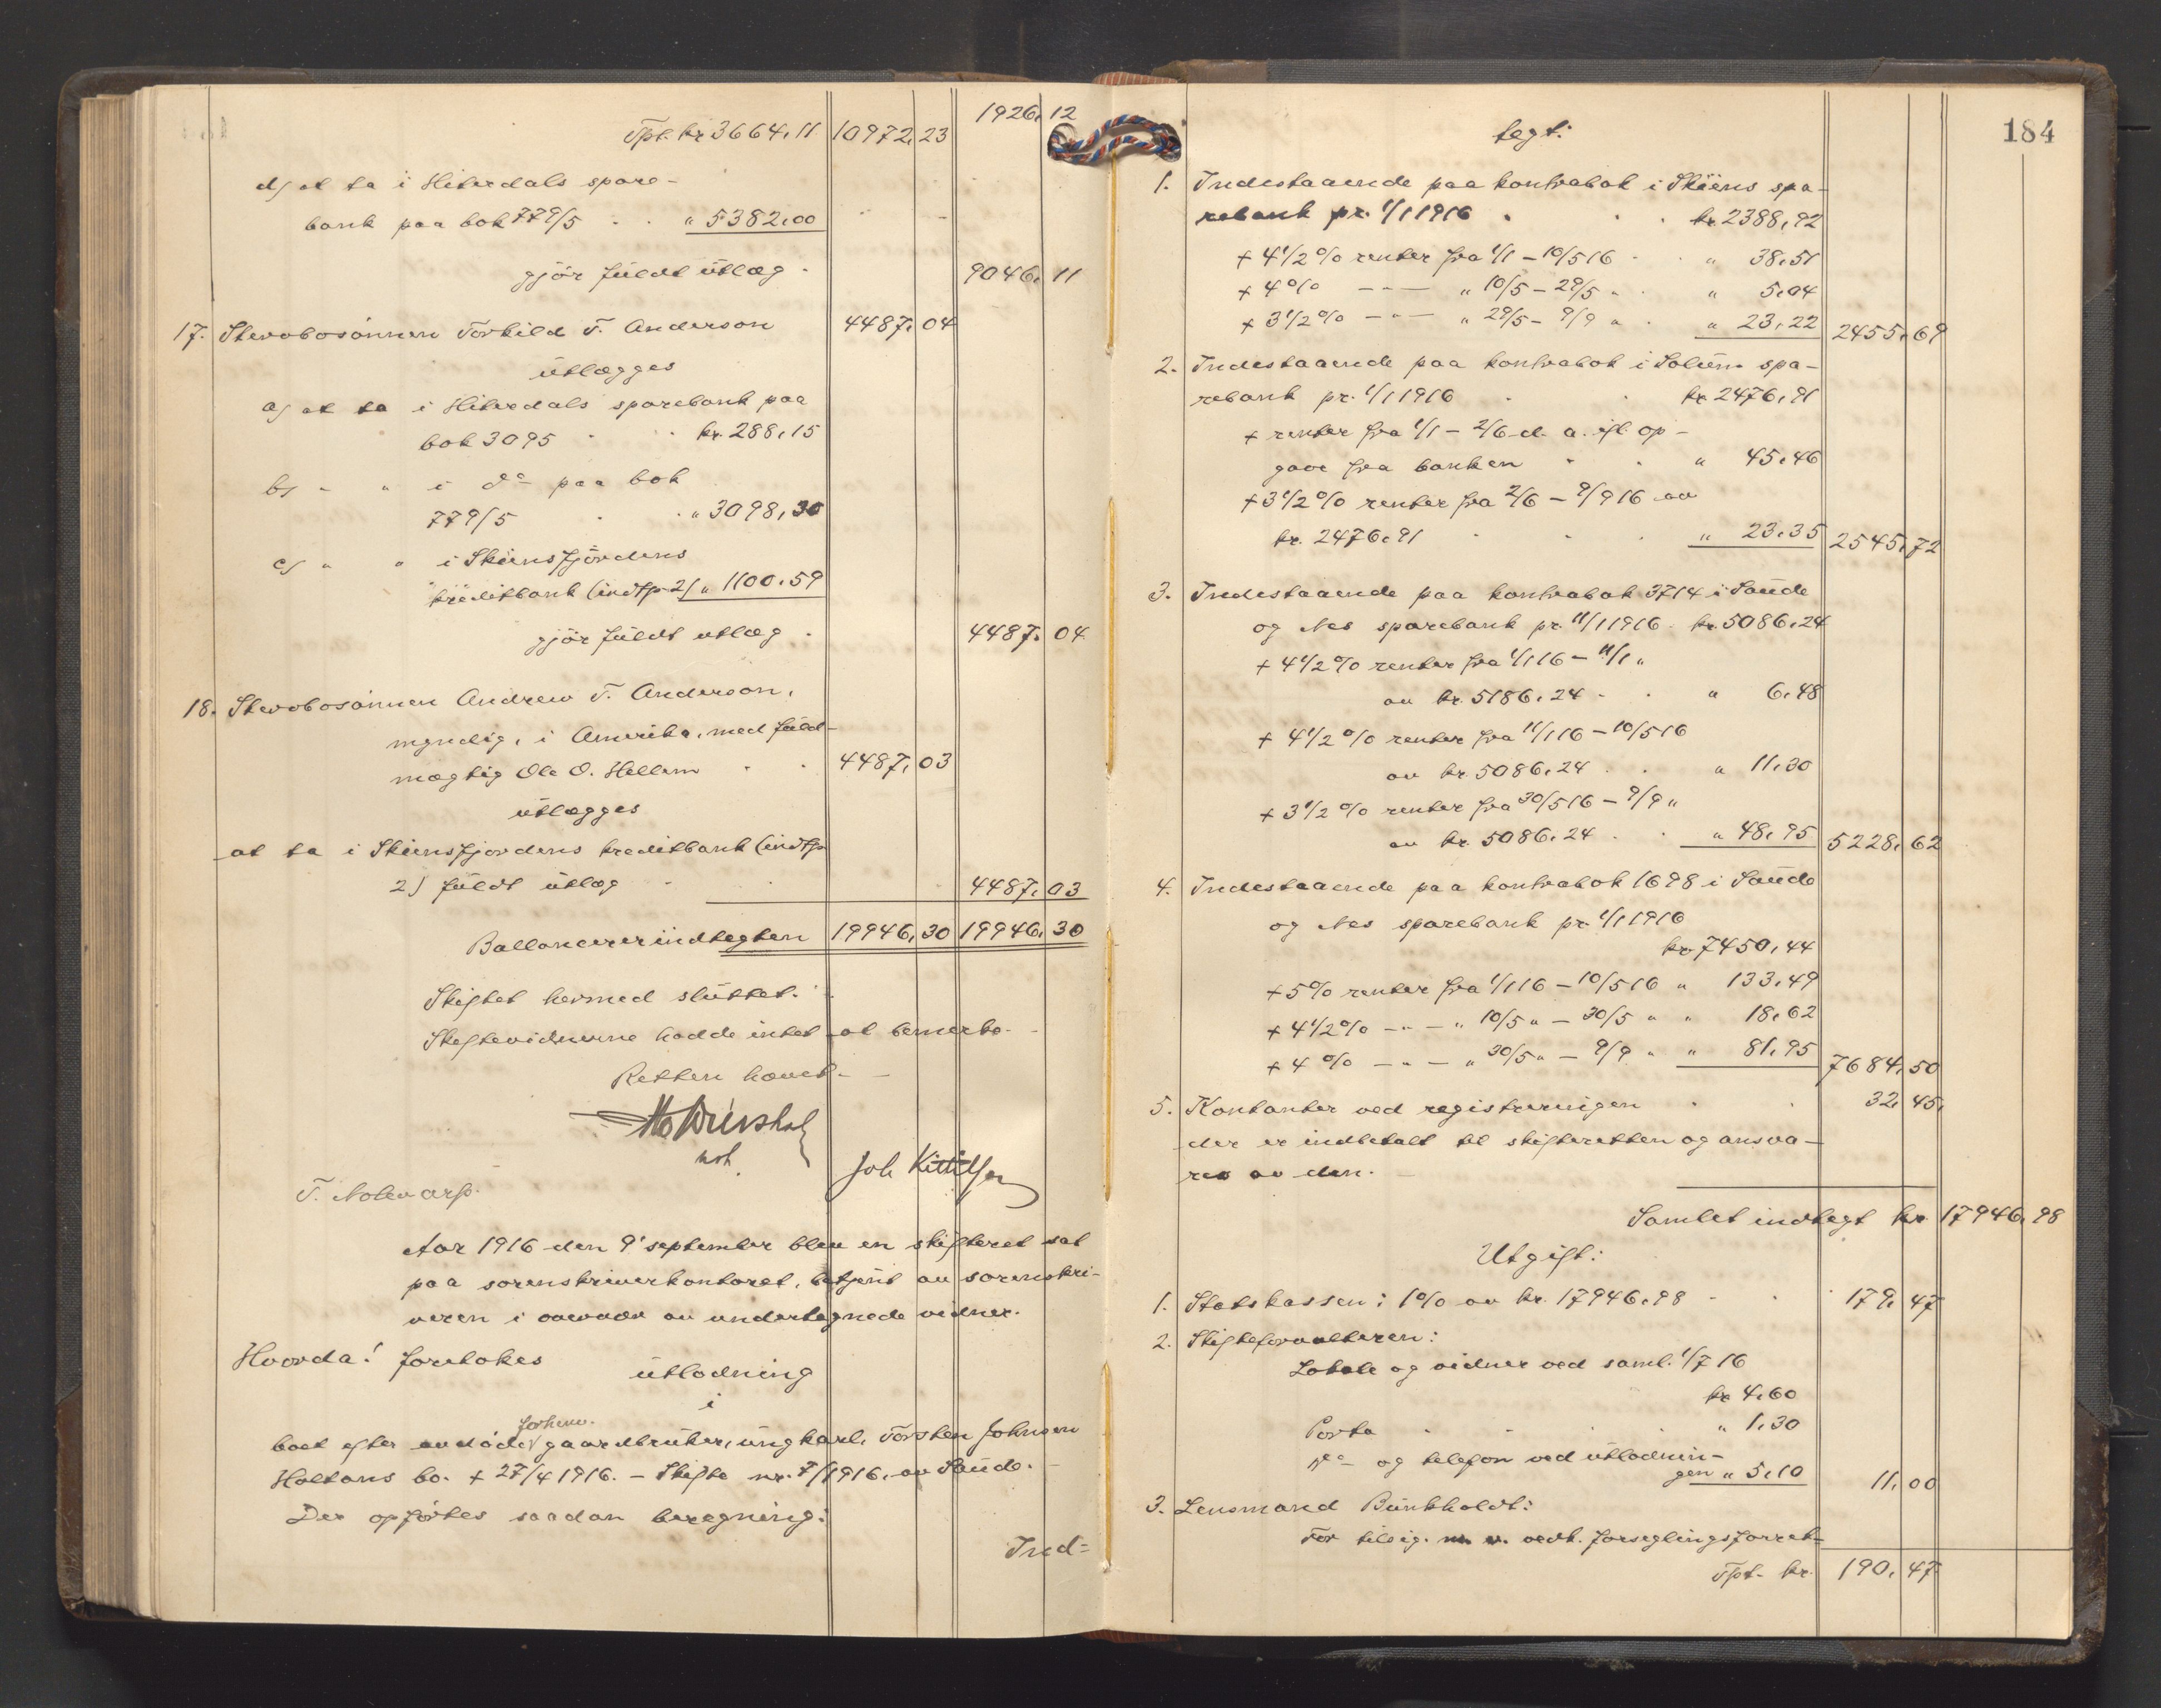 Tpt. kr 3664,11 10972,23 1926,12
d) at ta i Hiterdals spare-
bank paa bok 779/5 . . " 5382,00
gjör fuldt utlæg . 9046,11
17. Stervbosönnen Torkild T. Anderson 4487,04
utlægges
a) at ta i Hiterdals sparebank paa
bok 3095 . . kr. 288,15
b) " " i do paa bok
779/5 . . " 3098,30
c) " " i Skiensfjördens
kreditbank (indtp 2) " 1100,59
gjör fuldt utlæg . 4487,04
18. Stervbosönnen Andrew T. Anderson,
myndig, i Amerika, med fuld-
mægtig Ole O. Hellem . . 4487,03
utlægges
at ta i Skiensfjordens kreditbank (indtp
2) fuldt utlæg . . 4487,03
Ballancerer indtegten 19946,30 19946,30
Skiftet hermed sluttet.
Skiftevidnerne hadde intet at bemerke.
Retten hævet.
Joh Kittilsen
T. Nolevarp.
Aar 1916 den 9' september blev en skifteret sat
paa sorenskriverkontoret, betjent av sorenskri-
veren i overvær av undertegnede vidner.
Hvorda! foretokes
utlodning
i
forhenv.
boet efter avdöde gaardbruker, ungkarl, Torsten Johnsen
Holtans bo. + 27/4 1916. - Skifte nr. 7/1916, av Saude.
Der opförtes saadan beregning:
Ind=
184
tegt:
1. Indestaaende paa kontrabok i Skiens spa-
rebank pr. 1/1 1916 . . . kr. 2388,92
+ 4 1/2 % renter fra 1/1 - 10/5 16 . . " 38,51
+ 4% - " - " 10/5 - 29/5 " . " 5,04
+ 3 1/2 % - " - " 29/5 - 9/9 " . " 23,22 2455,69
2. Indestaaende paa kontrabok i Solum spa-
rebank pr. 1/1 1916 . . kr. 2476,91
+ renter fra 1/1 - 2/6 d. a. ifl. op-
gave fra banken . . " 45,46
+ 3 1/2 % renter fra 2/6 - 9/9 16 av
kr. 2476,91 . . . " 23,35 2545,72
3. Indestaaende paa kontrabok 3714 i Saude
og Nes sparebank pr. 11/1 1916 . kr. 5086,24
+ 4 1/2 % renter fra 1/1 16 - 11/1 "
av kr. 5186,24 . . " 6,48
+ 4 1/2 % renter fra 11/1 16 - 10/5 16
av kr. 5086,24 . . " 11,30
+ 3 1/2 % renter fra 30/5 16 - 9/9 "
av kr. 5086,24 . . " 48,95 5228,62
4. Indestaaende paa kontrabok 1698 i Saude
og Nes sparebank pr. 1/1 1916
kr. 7450,44
+ 5% renter fra 1/1 16 - 10/5 16 " 133,49
+ 4 1/2 % - " - " 10/5 " - 30/5 " " 18,62
+ 4 % - " - " 30/5 " - 9/9 " " 81,95 7684,50
5. Kontanter ved registreringen . . 32,45,
der er indbetalt til skifteretten og ansva-
res av den.
Samlet indtegt kr. 17946,98
Utgift:
1. Statskassen: 1% av kr. 17946,98 . . 179,47
2. Skifteforvalteren:
Lokale og vidner ved saml. 1/7 16
kr 4,60
Porto . . . . " 1,30
do og telefon ved utlodnin-
gen " 5,10 11,00
3. Lensmand Bunkholdt:
For tilsig. m. v. vedk. forseglingsforret-
Tpt. kr. 190,47